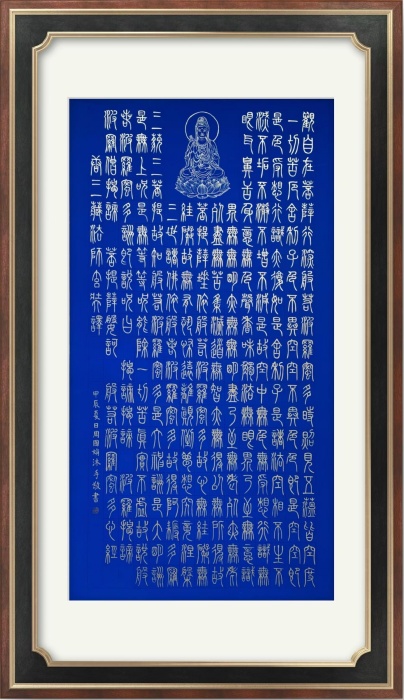 觀自在菩薩行深般若波羅蜜多時照見五蘊皆空度
一切苦厄舍利子色不異空空不異色色即是空空即
是色受想行識亦復如是舍利子是諸法空相不生不
滅不垢不淨不增不減是故空中無色無受想行識無
眼耳鼻舌身意無色聲香味觸法無眼界乃至無意識
界無無明亦無無明盡乃至無老死亦無老
死盡無苦集滅道無智亦無得以無所得故
菩提薩埵依般若波羅蜜多故心無罣礙無
罣礙故無有恐怖遠離顛倒夢想究竟涅槃
三世諸佛依般若波羅蜜多故得阿耨多羅
三藐三菩提故知般若波羅蜜多是大神咒是大明咒
是無上咒是無等等咒能除一切苦真實不虛故說般
若波羅蜜多咒即說咒曰 揭諦揭諦 波羅揭諦
波羅僧揭諦 菩提薩婆訶 般若波羅蜜多心經
唐三藏法師玄奘譯
甲辰夏日周國沐手敬書